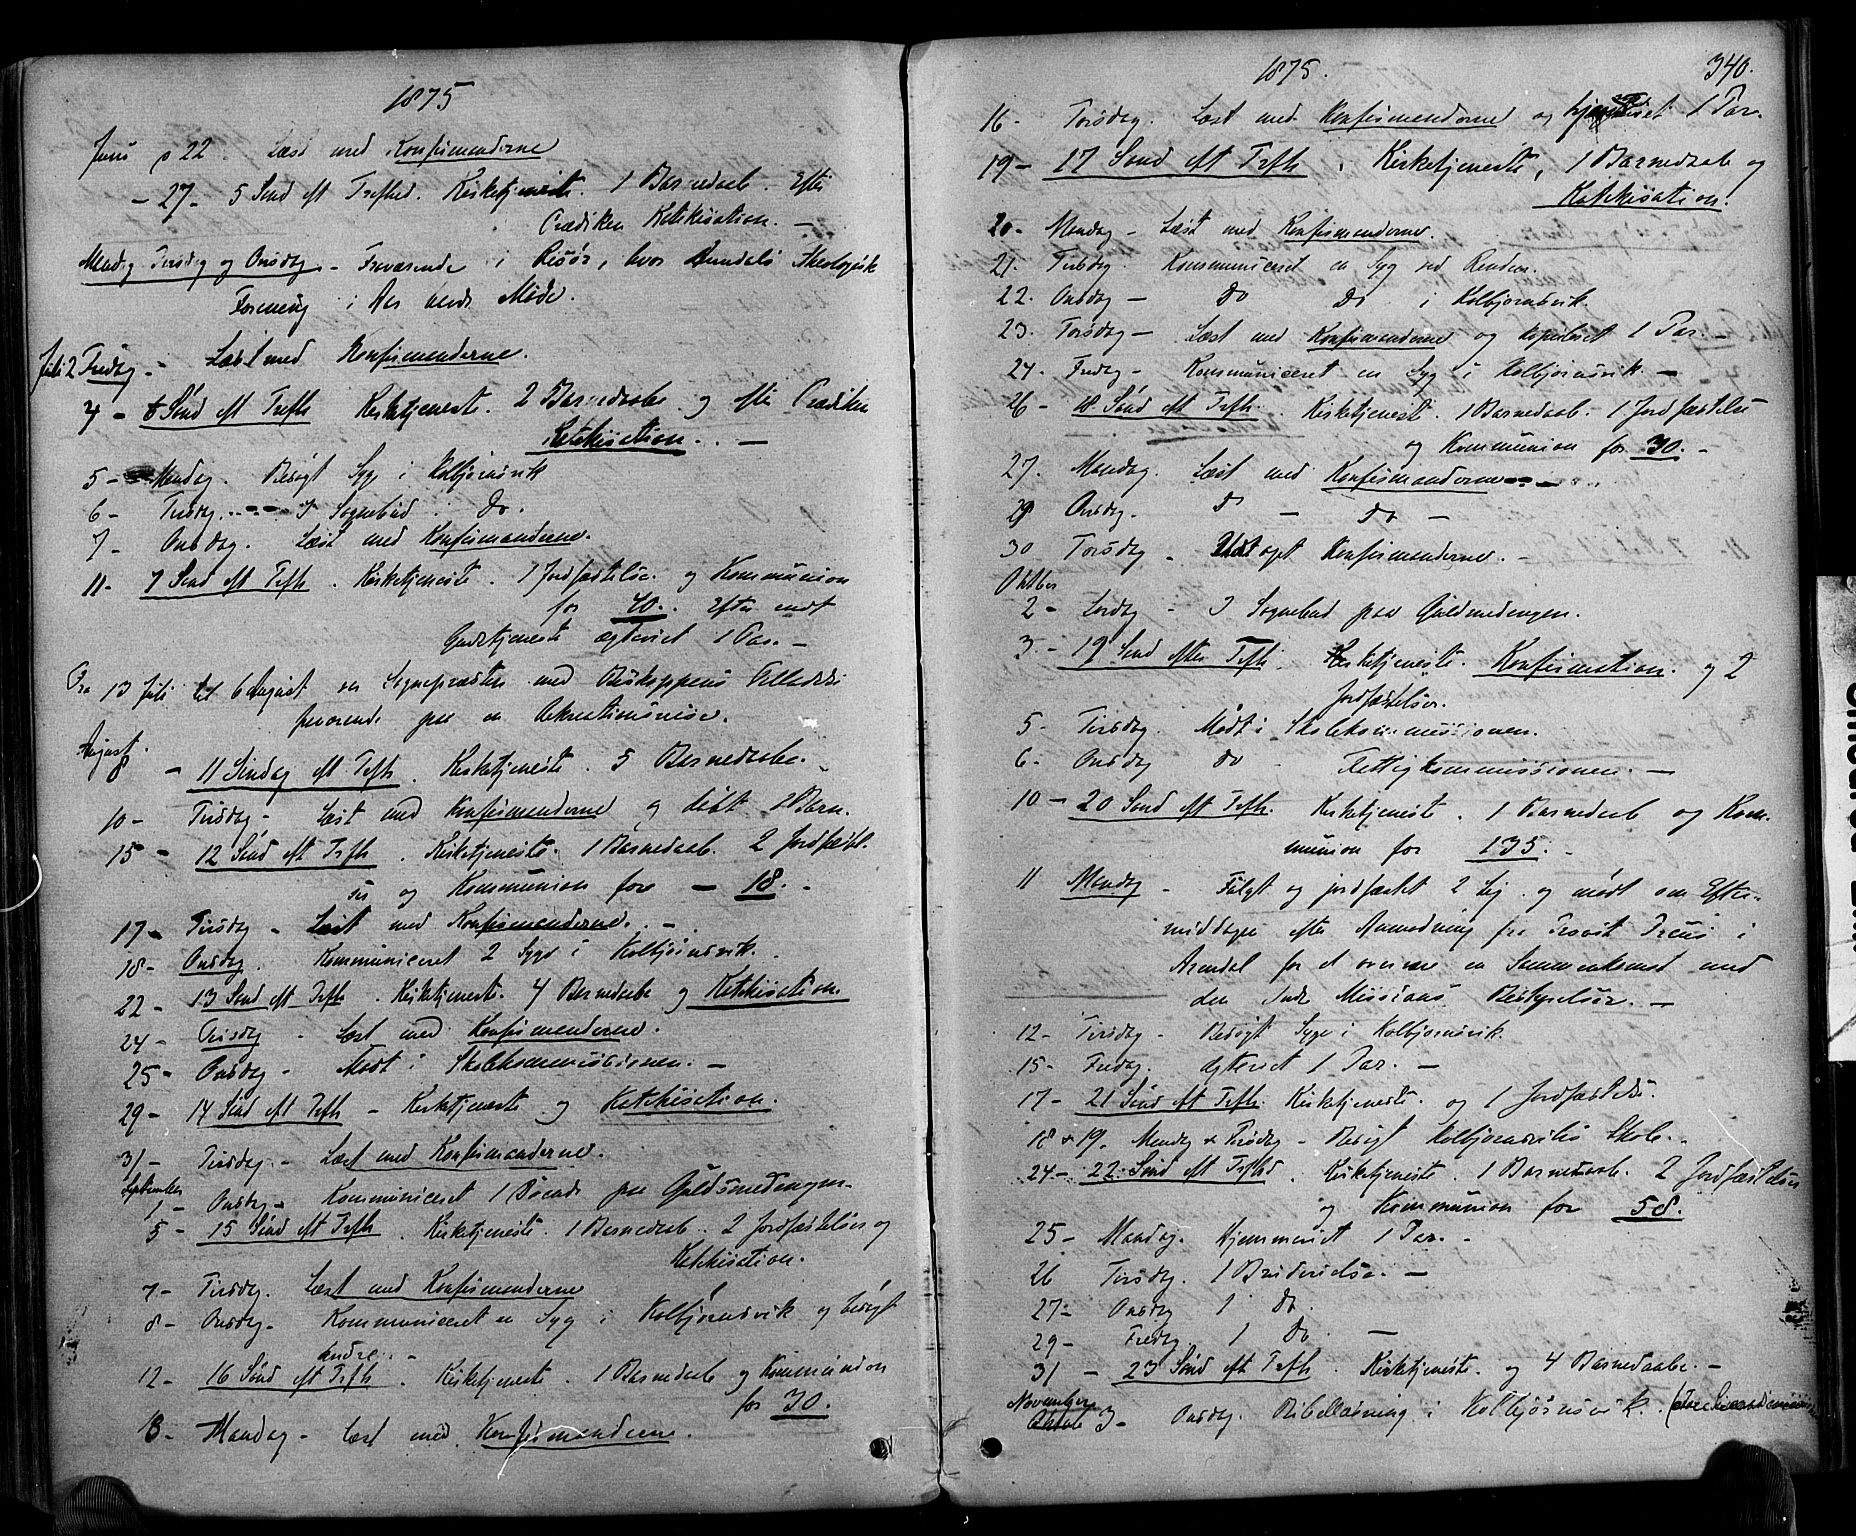 1875
Juni p 22. Læst med Konfirmanderne
- 27 - 5 Sønd eft Trefhed. Kirketjeneste. 1 Barnedaab. Efter
Prædiken Katekisation. -
Mandag Tirsdag og Onsdag - Fraværende i Risør, hvor Arendals Theologisk
Forening i Aar havde Møde.
Juli 2 Fredag - Læst med Konfirmanderne.
4 - 6 Sønd eft Trefh Kirketjeneste. 2 Barnedaabe og efter Prædiken
Katekisation. -
5 - Mandag. Besøgt Syge i Kolbjørnsvik
6 - Tirsdag. I Sognebud i Do.
7 - Onsdag. Læst med Konfirmanderne.
11 - 7 Sønd eft Trefh. Kirketjeneste. 1 Jordfæstelse og Kommunion
for 40. Efter endt
Gudstjeneste ægteviet 1 Par. -
Fra 13 Juli til 6 August var Sognepræsten med Biskoppens Tilladelse
fraværende paa en Rekreationsreise.
August.
8 - 11 Søndag eft Trefh. Kirketjeneste. 5 Barnedaabe.
10 - Tirsdag - Læst med Konfirmanderne og døbt 2 Børn.
15 - 12 Sønd eft Trefh. Kirketjeneste. 1 Barnedaab. 2 Jordfæstel-
ser og Kommunion fore - 18. -
17 - Tirsdag - Læst med Konfirmanderne. -
18 - Onsdag. Kommuniceret 2 Syge i Kolbjørnsvik.
22 - 13 Sønd eft Trefh. Kirketjeneste. 4 Barnedaabe og Katekisation
24 - Tirsdag - Læst med Konfirmanderne.
25 - Onsdag - Mødt i Skolekommissionen. -
29 - 14 Sønd eft Trefh - Kirketjeneste og Katekisation.
31 - Tirsdag - Læst med Konfirmanderne.
September
1 - Onsdag - Kommuniceret 1 paa Guldsmedengen.
5 - 15 Sønd eft Trefh. Kirketjeneste. 1 Barnedaab. 2 Jordfæstelser og
Katekisation.
7 - Tirsdag. Læst med Konfirmanderne
8 - Onsdag - Kommuniceret en Syg i Kolbjørnsvik og besøgt
andre. -
12 - 16 Sønd eft Trefh. Kirketjeneste. 1 Barnedaab og Kommunion
for 30.
13 - Mandag - Læst med Konfirmanderne.
1875. 340.
16 - Torsdag. Læst med Konfirmanderne og 1 Par.
19 - 17 Sønd eft Trefh. Kirketjeneste, 1 Barnedaab og
Katekisation.
20 - Mandag - Læst med Konfirmanderne.
21. Tirsdag. Kommuniceret en Syg ved
22. Onsdag - Do Do i Kolbjørnsvik.
23. Torsdag - Læst med Konfirmanderne og kopuleret 1 Par. -
24. Fredag - Kommuniceret en Syg i Kolbjørnsvik. -
26 - 18 Sønd eft Trefh. Kirketjeneste. 1 Barnedaab. 1 Jordfæstelse
og Kommunion for 30. -
27. Mandag. Læst med Konfirmanderne -
29 Onsdag. Do - Do -
30 Torsdag - Udtaget Konfirmanderne. -
Oktober
2 - Lørdag - I Sognebud paa Guldsmedengen.
3 - 19 Sønd efter Trefh. Kirketjeneste. Konfirmation. og 2
Jordfæstelser.
5. Tirsdag. Mødt i Skolekommissionen.
6. Onsdag Do - Fattigkommissionen. -
10 - 20 Sønd eft Trefh. Kirketjeneste. 1 Barnedaab og Kom-
munion for 135. -
11 Mandag - Fulgt og jordfæstet 2 Lig og mødt om Efter-
middagen efter Anmodning fra Provst i
Arendal for at overvære en Sammenkomst med
den Indre Missions Bestyrelse. -
12 - Tirsdag - Besøgt Syge i Kolbjørnsvik.
15 - Fredag. Ægteviet 1 Par. -
17 - 21 Sønd eft Trefh. Kirketjeneste. og 1 Jordfæstelse.
18 & 19. Mandag & Tirsdag - Besøgt Kolbjørnsviks Skole.
24 - 22 Sønd eft Trefhd. Kirketjeneste. 1 Barnedaab. 2 Jordfæstelser
og Kommunion for 58.
25 - Mandag. Hjemmeviet 1 Par. -
26 Tirsdag. 1 Brudevielse. -
27 - Onsdag 1 Do.
29 - Fredag 1 Do. -
31 - 23 Sønd eft Trefh. Kirketjeneste. og 4 Barnedaabe. -
November
3 - Onsdag. Bibellæsning i Kolbjørnsvik.